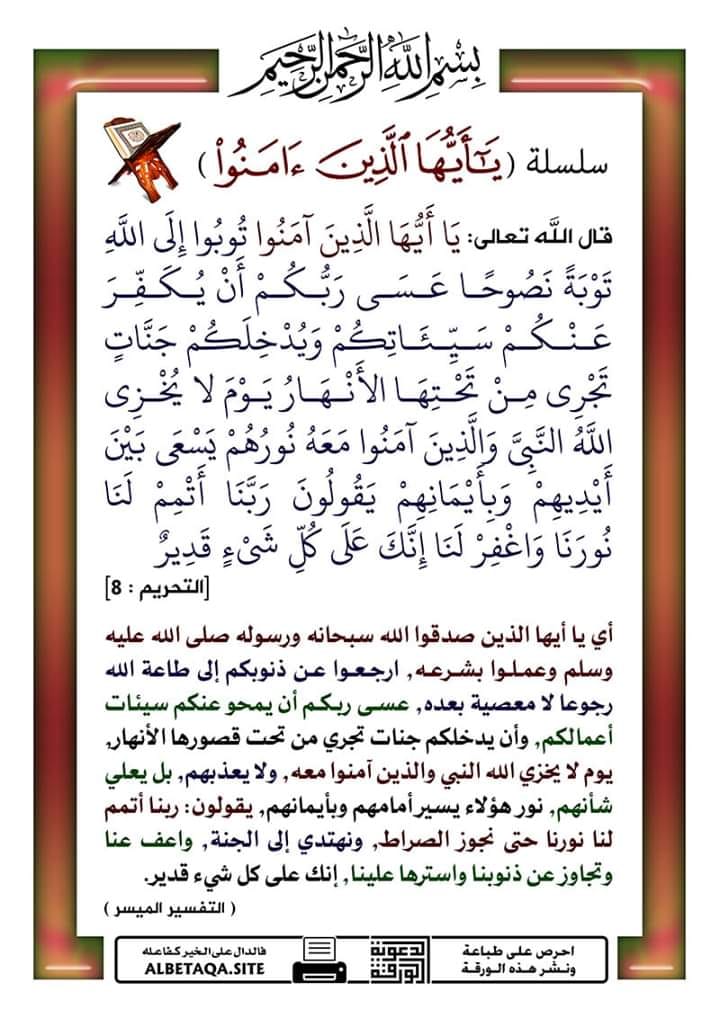 بِسْمِ اللَّهِ الرَّحْمَٰنِ الرَّحِيمِ
سلسلة ( يَـٰٓأَيُّهَا ٱلَّذِينَ ءَامَنُوا۟ )
قال الله تعالى: يَا أَيُّهَا الَّذِينَ آمَنُوا تُوبُوا إِلَى اللَّهِ
تَوْبَةً نَصُوحًا عَسَى رَبُّكُمْ أَنْ يُكَفِّرَ
عَنْكُمْ سَيِّئَاتِكُمْ وَيُدْخِلَكُمْ جَنَّاتٍ
تَجْرِى مِنْ تَحْتِهَا الأَنْهَارُ يَوْمَ لا يُخْزِى
اللَّهُ النَّبِىَّ وَالَّذِينَ آمَنُوا مَعَهُ نُورُهُمْ يَسْعَى بَيْنَ
أَيْدِيهِمْ وَبِأَيْمَانِهِمْ يَقُولُونَ رَبَّنَا أَتْمِمْ لَنَا
نُورَنَا وَاغْفِرْ لَنَا إِنَّكَ عَلَى كُلِّ شَىْءٍ قَدِيرٌ
[التحريم : 8]
أي يا أيها الذين صدقوا الله سبحانه ورسوله صلى الله عليه
وسلم وعملوا بشرعه, ارجعوا عن ذنوبكم إلى طاعة الله
رجوعا لا معصية بعده, عسى ربكم أن يمحو عنكم سيئات
أعمالكم, وأن يدخلكم جنات تجري من تحت قصورها الأنهار,
يوم لا يخزي الله النبي والذين آمنوا معه, ولا يعذبهم, بل يعلي
شأنهم, نور هؤلاء يسير أمامهم وبأيمانهم, يقولون: ربنا أتمم
لنا نورنا حتى نجوز الصراط, ونهتدي إلى الجنة, واعف عنا
وتجاوز عن ذنوبنا واسترها علينا, إنك على كل شيء قدير.
( التفسير الميسر )
احرص على طباعة
ونشر هذه الورقة
الورقة الدعوية
فالدال على الخير كفاعله
ALBETAQA.SITE